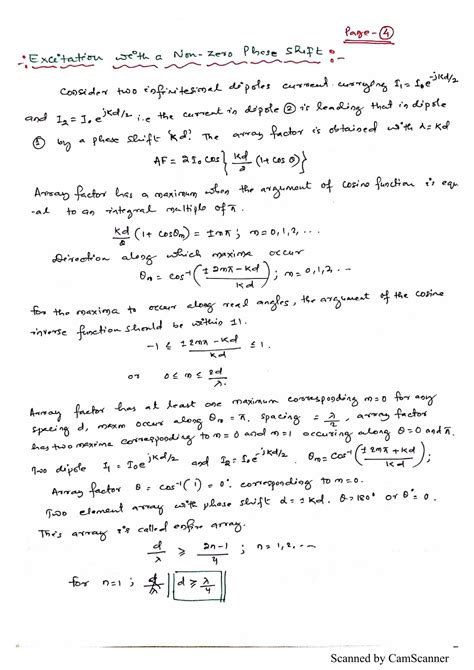 Page-④
-: Excitation with a Non-zero Phase Shift :-
Consider two infinitesimal dipoles current currying I₁ = I₀e^{-jKd/2}
and I₂ = I₀ e^{jKd/2} i.e the current in dipole ② is leading that in dipole
① by a phase shift 'Kd'. The array factor is obtained with α = Kd
AF = 2I₀ cos { Kd/2 (1+ cos θ) }
Array factor has a maximum when the argument of cosine function is equ
-al to an integral multiple of π.
Kd/2 (1+ cosθm) = ±mπ ; m = 0, 1, 2, ...
Direction along which maxima occur
θm = cos⁻¹ ( (±2mπ - Kd) / Kd ) ; m = 0, 1, 2 ...
for the maxima to occur along real angles, the argument of the cosine
inverse function should be within ±1.
-1 ≤ (±2mπ - Kd) / Kd ≤ 1.
or 0 ≤ m ≤ 2d/λ.
Array factor has at least one maximum corresponding m=0 for any
spacing d, maxm occur along θm = π. spacing = λ/2, array factor
has two maxima corresponding to m=0 and m=1 occuring along θ=0 and π.
Two dipole I₁ = I₀e^{jKd/2} and I₂ = I₀e^{-jKd/2}. θm = cos⁻¹ ( (±2mπ + Kd) / Kd ) ;
Array factor θ = cos⁻¹(1) = 0° corresponding to m=0.
Two element array with phase shift α = ±Kd. θ = 180° or θ° = 0.
This array is called enfire array.
d/λ ≥ (2n-1)/4 ; n = 1, 2, ...
for n=1 ; d/λ d ≥ λ/4
Scanned by CamScanner